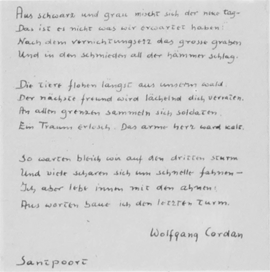 Aus schwarz und grau mischt sich der neue tag –
Das ist es nicht was wir erwartet haben:
Nach dem vernichtungserz das grosse graben
Und in den schmieden all der hämmer schlag.
Die tiere flohen längst aus unserm wald.
Der nächste freund wird lächelnd dich verraten.
An allen grenzen sammeln sich soldaten.
Ein Traum erlosch. Das arme herz ward kalt.
So warten bleich wir auf den dritten sturm
Und viele scharen sich um schnelle fahnen –
Ich aber lebe innen mit den ahnen:
Aus worten baue ich den letzten turm.
Wolfgang Cordan
Santpoort